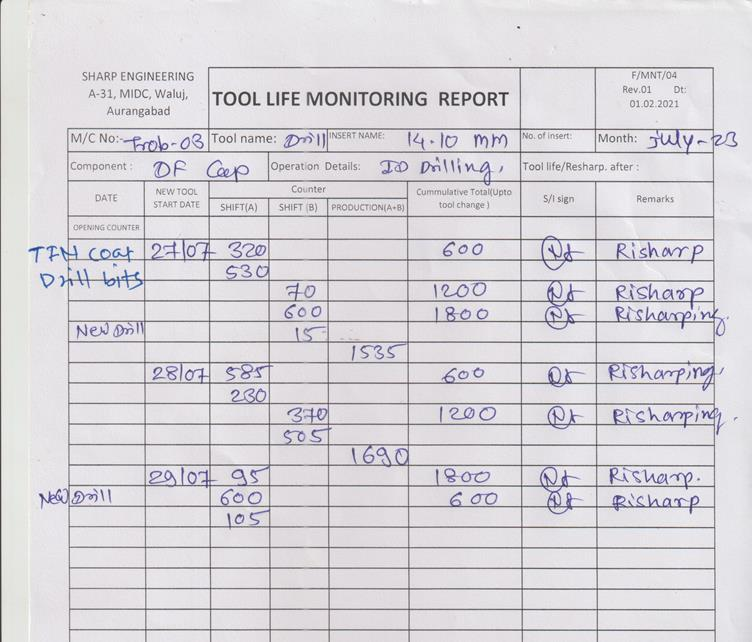 SHARP ENGINEERING
A-31, MIDC, Waluj,
Aurangabad
TOOL LIFE MONITORING REPORT
F/MNT/04
Rev.01 Dt:
01.02.2021
M/C No:- Frob-03 Tool name: Drill INSERT NAME: 14.10 mm No. of insert: Month: July-23
Component : DF Cap Operation Details: ID Drilling, Tool life/Resharp. after :
DATE NEW TOOL START DATE Counter Cummulative Total(Upto tool change ) S/I sign Remarks
SHIFT(A) SHIFT (B) PRODUCTION(A+B)
OPENING COUNTER
TIN coat 27/07 320 600 Risharp
Drill bits 530
70 1200 Risharp
600 1800 Risharping.
New Drill 15
1535
28/07 585 600 Risharping,
230
370 1200 Risharping.
505
1690
29/07 95 1800 Risharp.
New Drill 600 600 Risharp
105